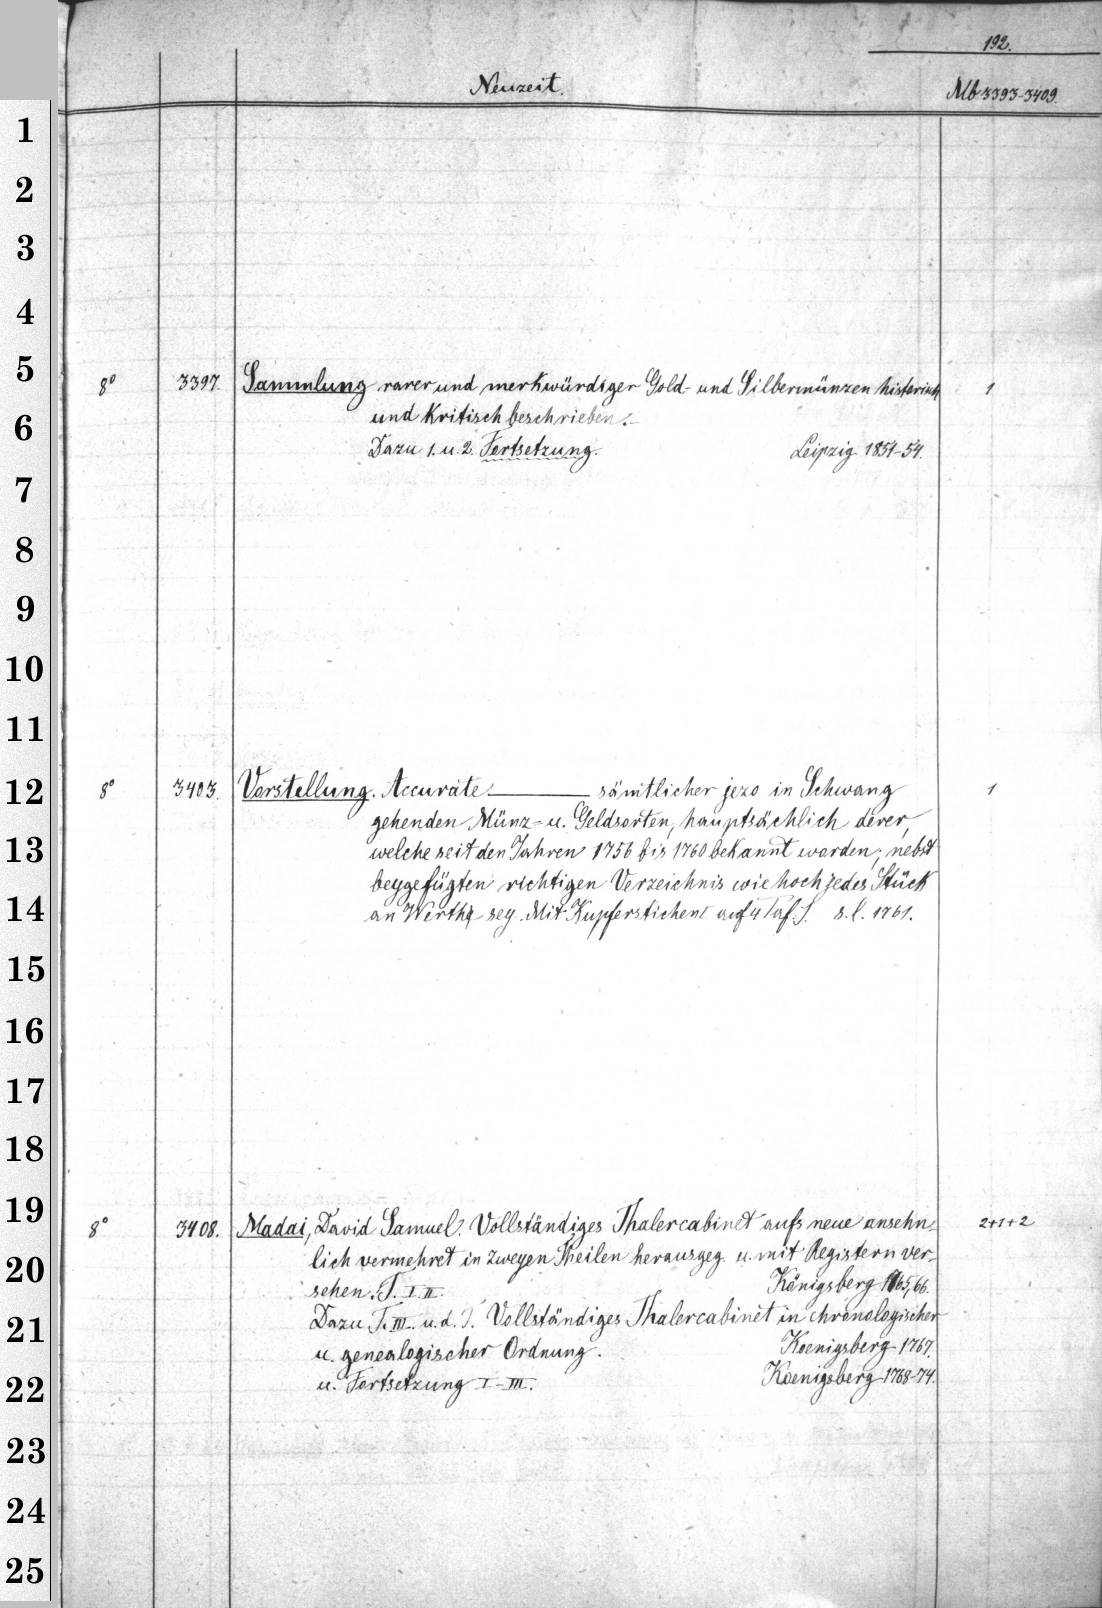 192.
Neuzeit.
Mb 3393-3409.
1
2
3
4
5
6
7
8
9
10
11
12
13
14
15
16
17
18
19
20
21
22
23
24
25
8° 3397. Sammlung rarer und merkwürdiger Gold- und Silbermünzen historisch 1
und kritisch beschrieben.
Dazu 1. u. 2. Fortsetzung. Leipzig 1851-54.
8° 3403. Vorstellung. Accurate ——— sämtlicher jezo in Schwang 1
gehenden Münz- u. Geldsorten, hauptsächlich derer,
welche seit den Jahren 1756 bis 1760 bekannt worden, nebst
beygefügten richtigen Verzeichnis wie hoch jedes Stück
an Werth sey. Mit Kupferstichen auf 4 Taf. s. l. 1761.
8° 3408. Madai, David Samuel. Vollständiges Thalercabinet aufs neue ansehn- 2+1+2
lich vermehret in zweyen Theilen herausgeg. u. mit Registern ver-
sehen. T. I. II. Königsberg 1765, 66.
Dazu T. III. u. d. T. Vollständiges Thalercabinet in chronologischer
u. genealogischer Ordnung. Koenigsberg 1767.
u. Fortsetzung I-III. Koenigsberg 1768-74.